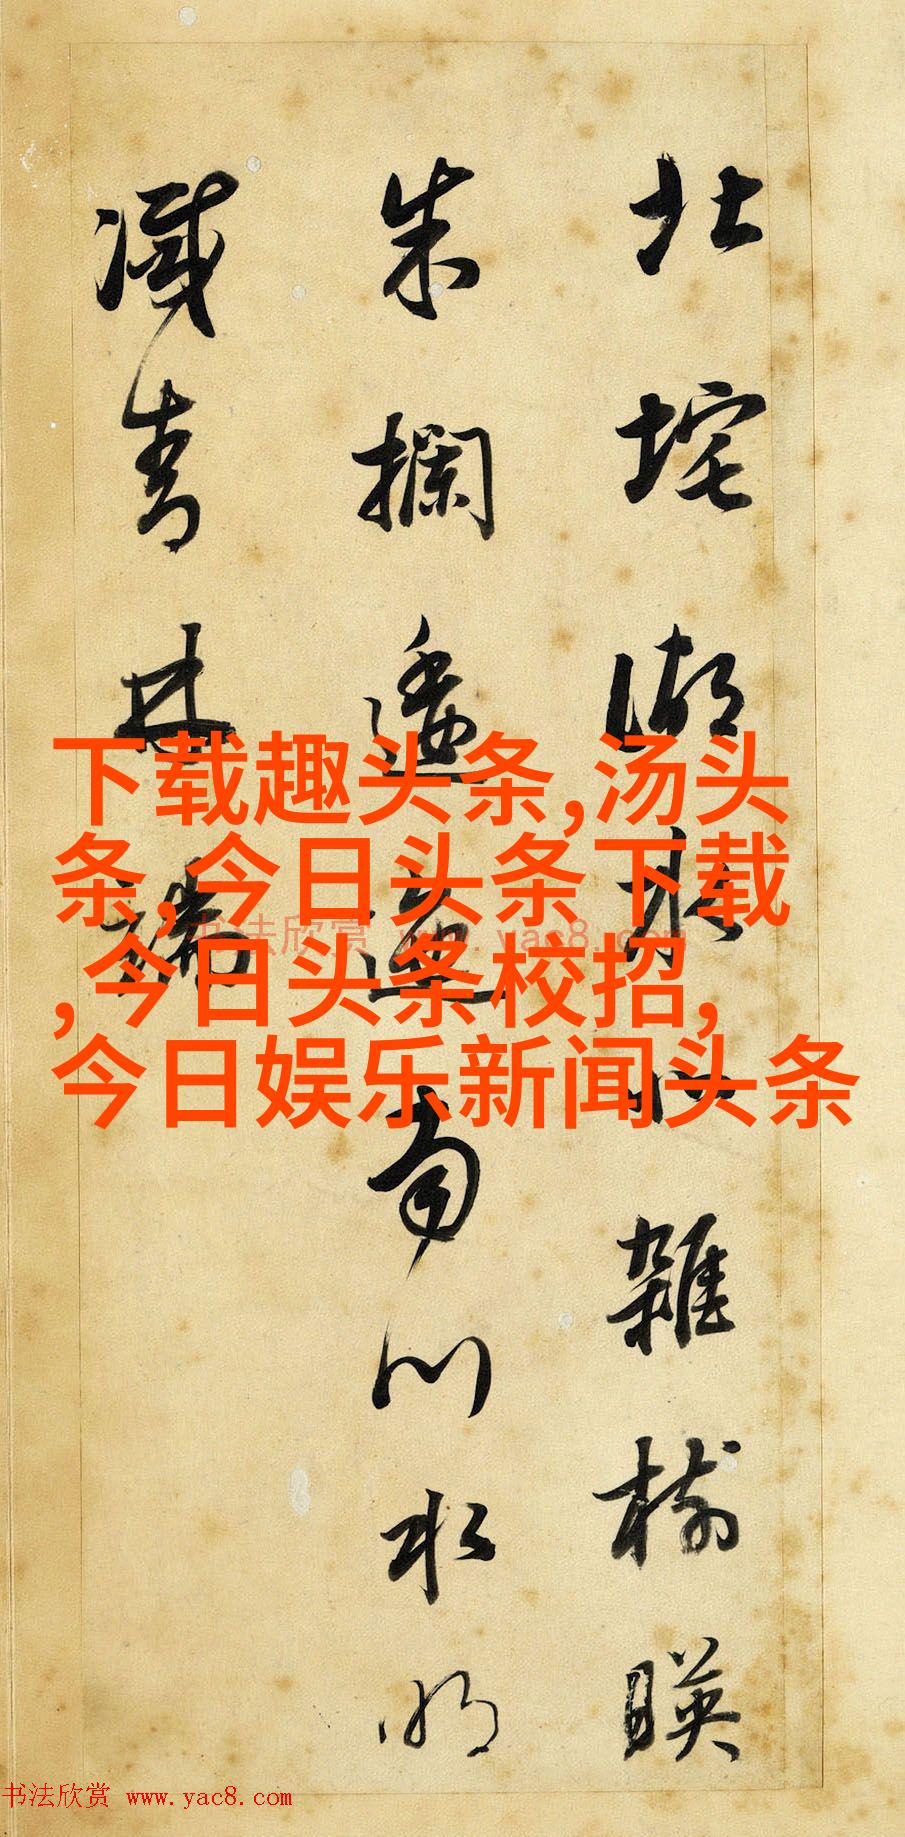 北垞湖北雜樹暎
朱欄逶迤南川水明
滅青林端
下载趣头条,汤头
条,今日头条下载
,今日头条校招,
今日娱乐新闻头条
书法欣赏 www.yac8.com
书法欣赏 www.yac8.com